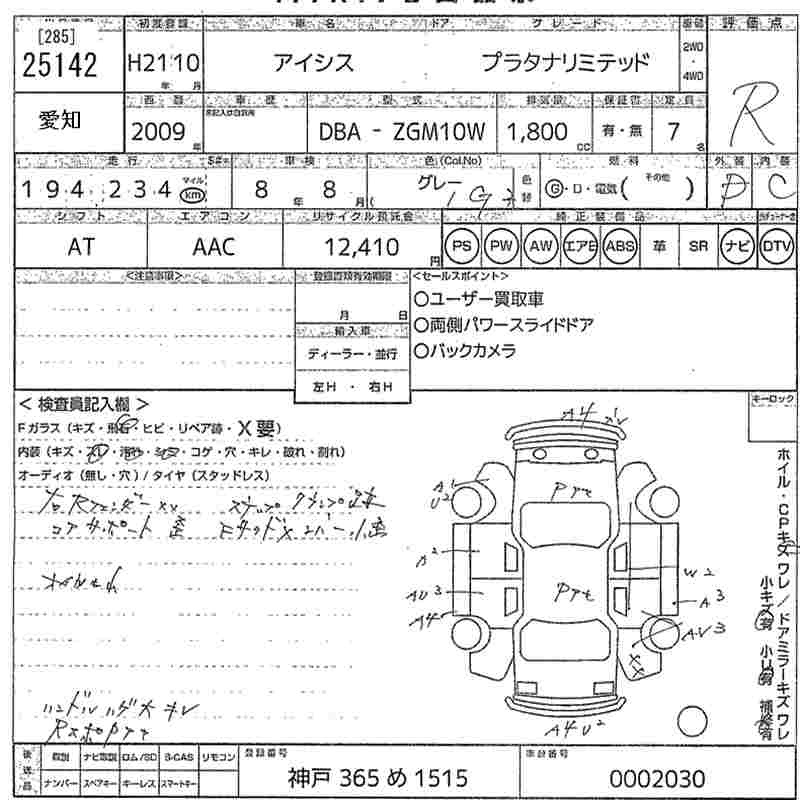 初度登録 車名 ドア グレード 評価点
[285]
25142 H21 10 アイシス プラタナリミテッド 2WD・4WD R
年 月
愛知 西暦 車歴 型式 排気量 保証書 定員
2009年 DBA - ZGM10W 1,800cc 有・無 7名
走行 車検 色(Col.No) 色替 燃料 外装 内装
194,234 マイル km 8年 8月 グレー 1G3 G・D・電気( その他 ) D C
シフト エアコン リサイクル預託金 純正装備品
AT AAC 12,410円 PS PW AW エアB ABS 革 SR ナビ DTV
<注意事項> 登録書類有効期限 <セールスポイント>
月 日
○ユーザー買取車
○両側パワースライドドア
○バックカメラ
輸入車
ディーラー・並行
左H ・ 右H
< 検査員記入欄 > キーロック
Fガラス(キズ・飛石・ヒビ・リペア跡・X要)
内装(キズ・スレ・汚れ・シミ・コゲ・穴・キレ・破れ・割れ)
オーディオ(無し・穴)/タイヤ(スタッドレス)
コアサポート 歪
オイルもれ
A4
A1
U2
Pタテ
A2
W2
AU3
A3
A4
Pタテ
AU3
XX
A4 U2
ホイル・CPキズ ワレ/ドアミラーキズ ワレ
小キズ有 小U有 補修有
後送品 取説 ナビ取説 ロム/SD B-CAS リモコン 登録番号 車台番号
ナンバー スペアキー キーレス スマートキー 神戸 365 め 1515 0002030